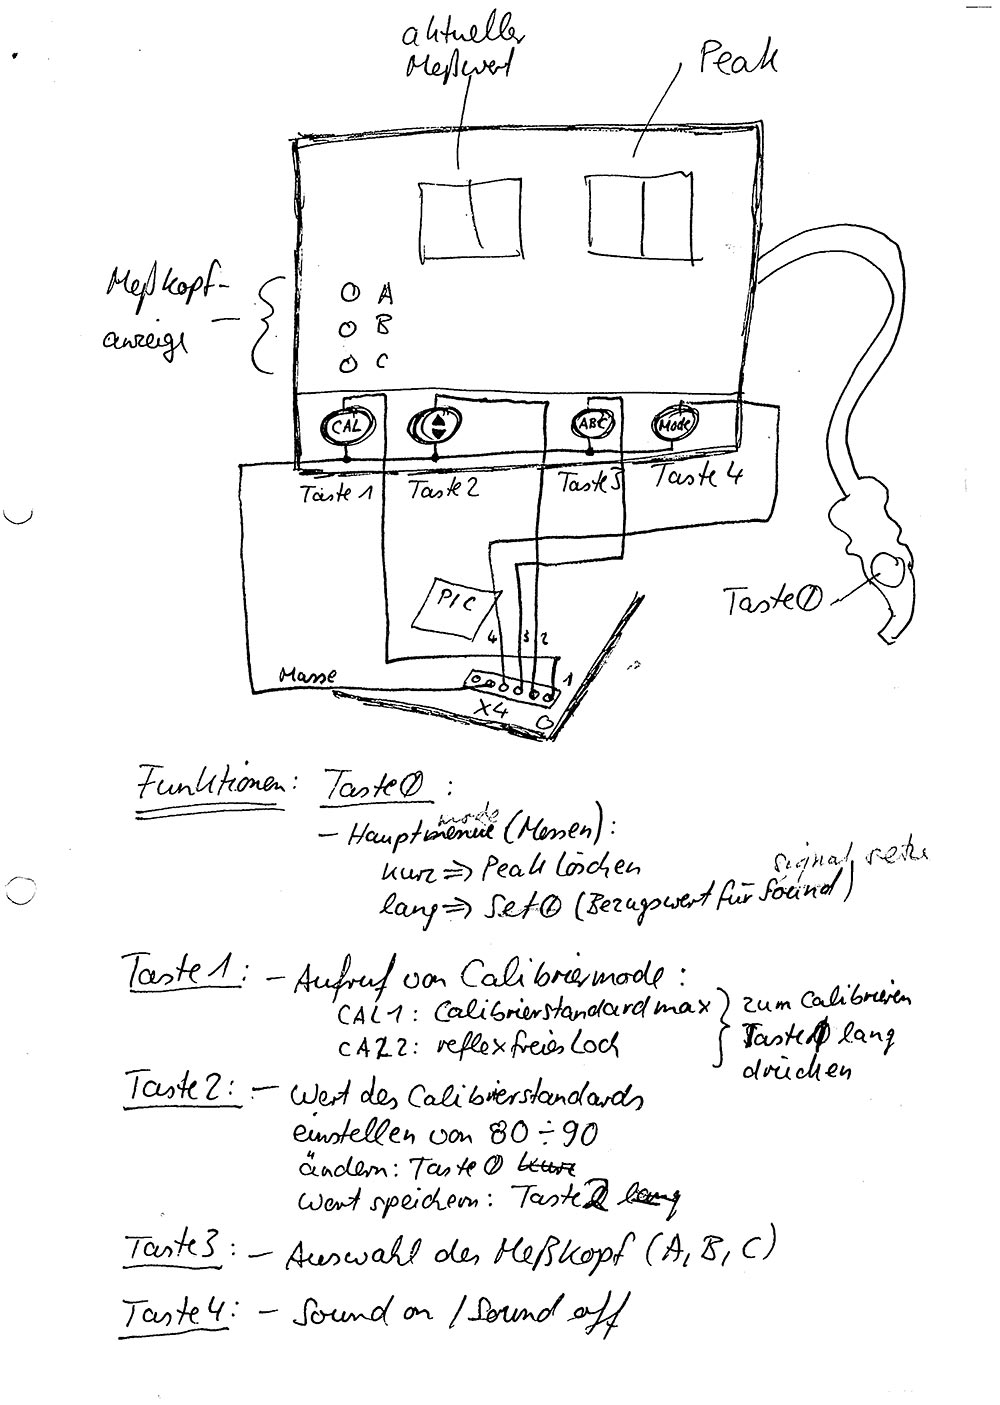 aktueller
Meßwert
Peak
Meßkopf-
anzeige
A
B
C
CAL
ABC
Mode
Taste 1
Taste 2
Taste 3
Taste 4
PIC
Taste 0
4
3
2
1
Masse
X4
Funktionen: Taste 0:
mode
- Hauptmenue (Messen):
kurz => Peak löschen
signal
lang => Set 0 (Bezugswert für Sound)
Taste 1: - Aufruf von Calibriermode:
CAL 1: Calibrierstandard max } zum Calibrieren
CAL 2: reflexfreies Loch Taste 0 lang
drücken
Taste 2: - Wert des Calibrierstandards
einstellen von 80 ÷ 90
ändern: Taste 0 kurz
Wert speichern: Taste 2 lang
Taste 3: - Auswahl des Meßkopf (A, B, C)
Taste 4: - Sound on / Sound off